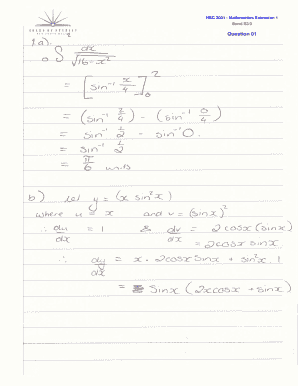 HSC 2001 - Mathematics Extension 1
Question 01
BOARD OF STUDIES
1 a)
∫₀² dx / √(16-x²)
= [sin⁻¹ x/4]₀²
= (sin⁻¹ 2/4) - (sin⁻¹ 0/4)
= sin⁻¹ 1/2 - sin⁻¹ 0.
= sin⁻¹ 1/2
= π/6 units
b) let y = (x sin²x)
where u = x and v = (sin x)²
∴ du/dx = 1 & dv/dx = 2 cosx (sin x)
= 2 cosx sin x
∴ dy/dx = x · 2cosx sinx + sin²x · 1
= sinx (2xcosx + sinx)